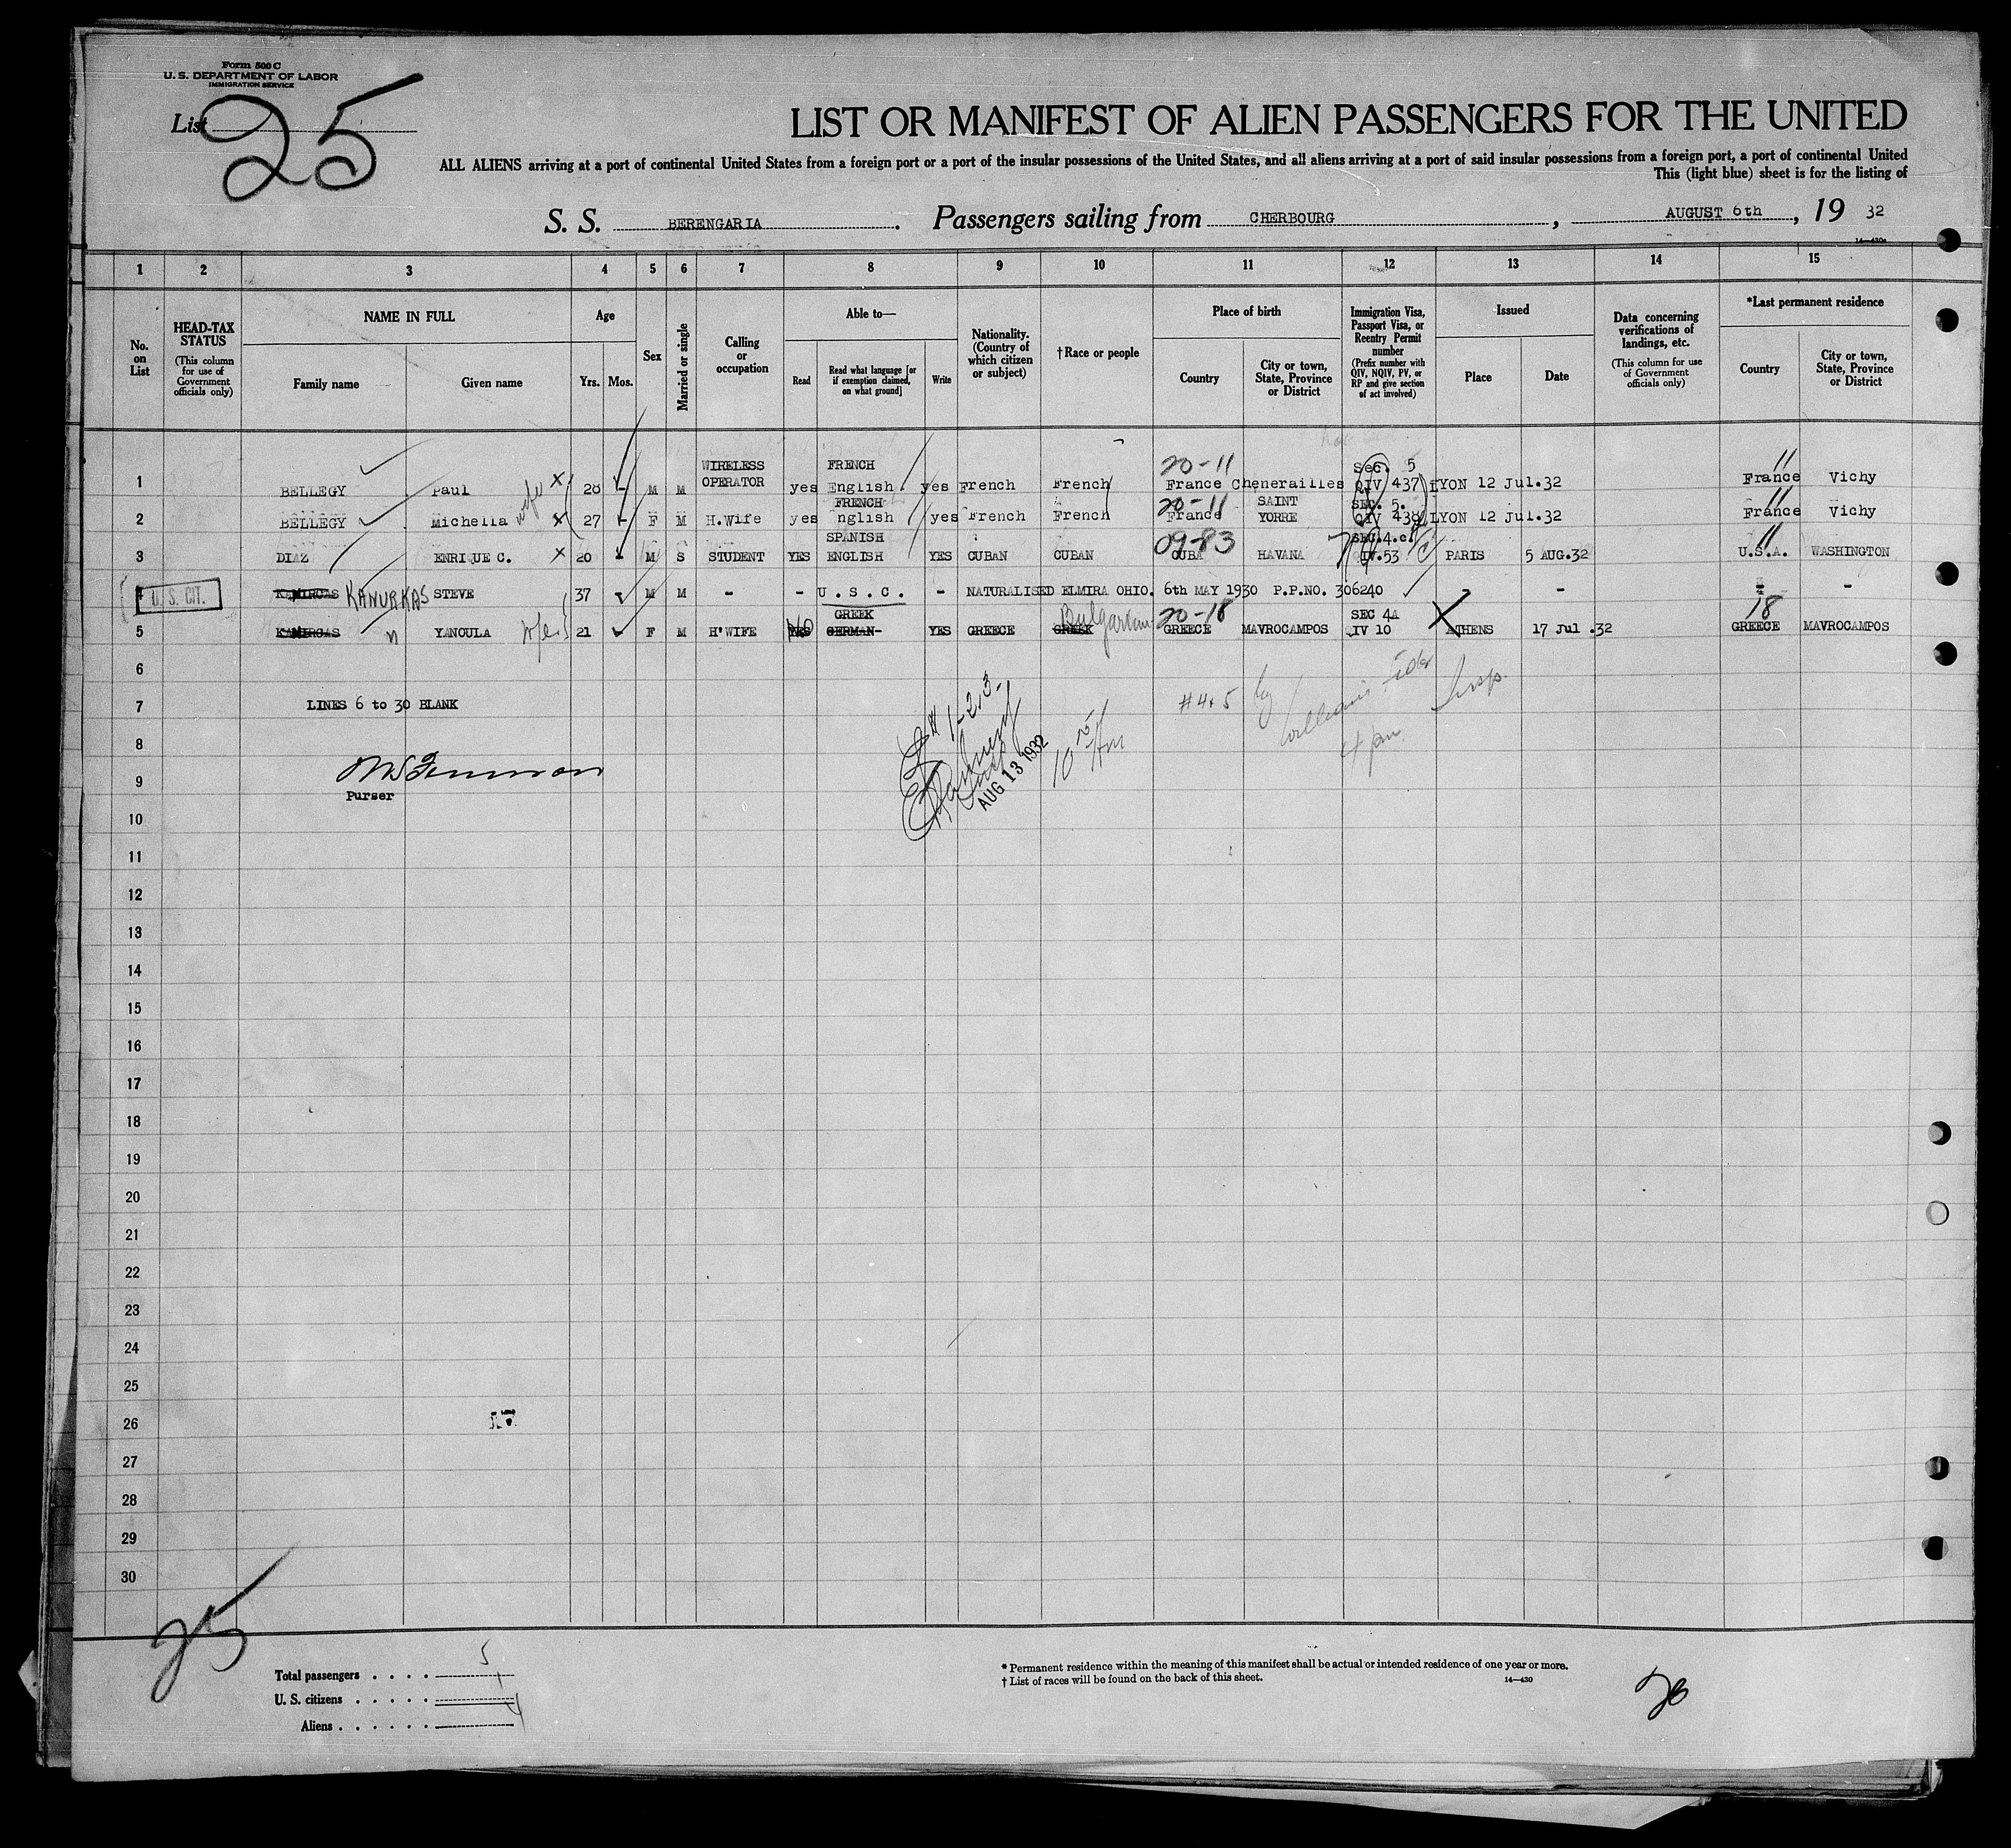 Form 500 C
U. S. DEPARTMENT OF LABOR
IMMIGRATION SERVICE
List 25
LIST OR MANIFEST OF ALIEN PASSENGERS FOR THE UNITED
ALL ALIENS arriving at a port of continental United States from a foreign port or a port of the insular possessions of the United States, and all aliens arriving at a port of said insular possessions from a foreign port, a port of continental United
This (light blue) sheet is for the listing of
S. S. BERENGARIA. Passengers sailing from CHERBOURG, AUGUST 6th, 19 32
14—430a
1 2 3 4 5 6 7 8 9 10 11 12 13 14 15
No. on List
HEAD-TAX STATUS (This column for use of Government officials only)
NAME IN FULL
Family name Given name
Age
Yrs. Mos.
Sex
Married or single
Calling or occupation
Able to—
Read Read what language [or if exemption claimed, on what ground] Write
Nationality. (Country of which citizen or subject)
†Race or people
Place of birth
Country City or town, State, Province or District
Immigration Visa, Passport Visa, or Reentry Permit number (Prefix number with QIV, NQIV, PV, or RP and give section of act involved)
Issued
Place Date
Data concerning verifications of landings, etc. (This column for use of Government officials only)
*Last permanent residence
Country City or town, State, Province or District
WIRELESS FRENCH 20-11 Sec. 5 11
1 BELLEGY Paul X 28 - M M OPERATOR yes English yes French French France Chenerailles QIV 437 LYON 12 Jul.32 France Vichy
FRENCH 20-11 SAINT SEC. 5. 11
2 BELLEGY Michella wife X 27 - F M H.Wife yes nglish yes French French France YORRE QIV 438 LYON 12 Jul.32 France Vichy
SPANISH 09-83 SEC.4.c. 11
3 DIAZ ENRIQUE C. X 20 - M S STUDENT YES ENGLISH YES CUBAN CUBAN CUBA HAVANA IV.53 PARIS 5 AUG.32 U.S.A. WASHINGTON
4 U. S. CIT. KAMIRGAS KANURKAS STEVE 37 - M M - - U.S.C. - NATURALISED ELMIRA OHIO. 6th MAY 1930 P.P.NO. 306240 - - - -
GREEK Bulgarian 20-18 SEC 4A X 18
5 KAMIRGAS " YANOULA wife 21 - F M H'WIFE YES No GERMAN- YES GREECE GREEK GREECE MAVROCAMPOS QIV 10 ATHENS 17 Jul .32 GREECE MAVROCAMPOS
6
7 LINES 6 to 30 BLANK
# 1-2,3-
#4+5 by Insp.
8 4 pm.
AUG 13 1932
9
Purser
10
11
12
13
14
15
16
17
18
19
20
21
22
23
24
25
26
27
28
29
30
25
Total passengers . . . . 5
U. S. citizens . . . . . 1
Aliens . . . . . . 4
* Permanent residence within the meaning of this manifest shall be actual or intended residence of one year or more.
† List of races will be found on the back of this sheet.
14—430